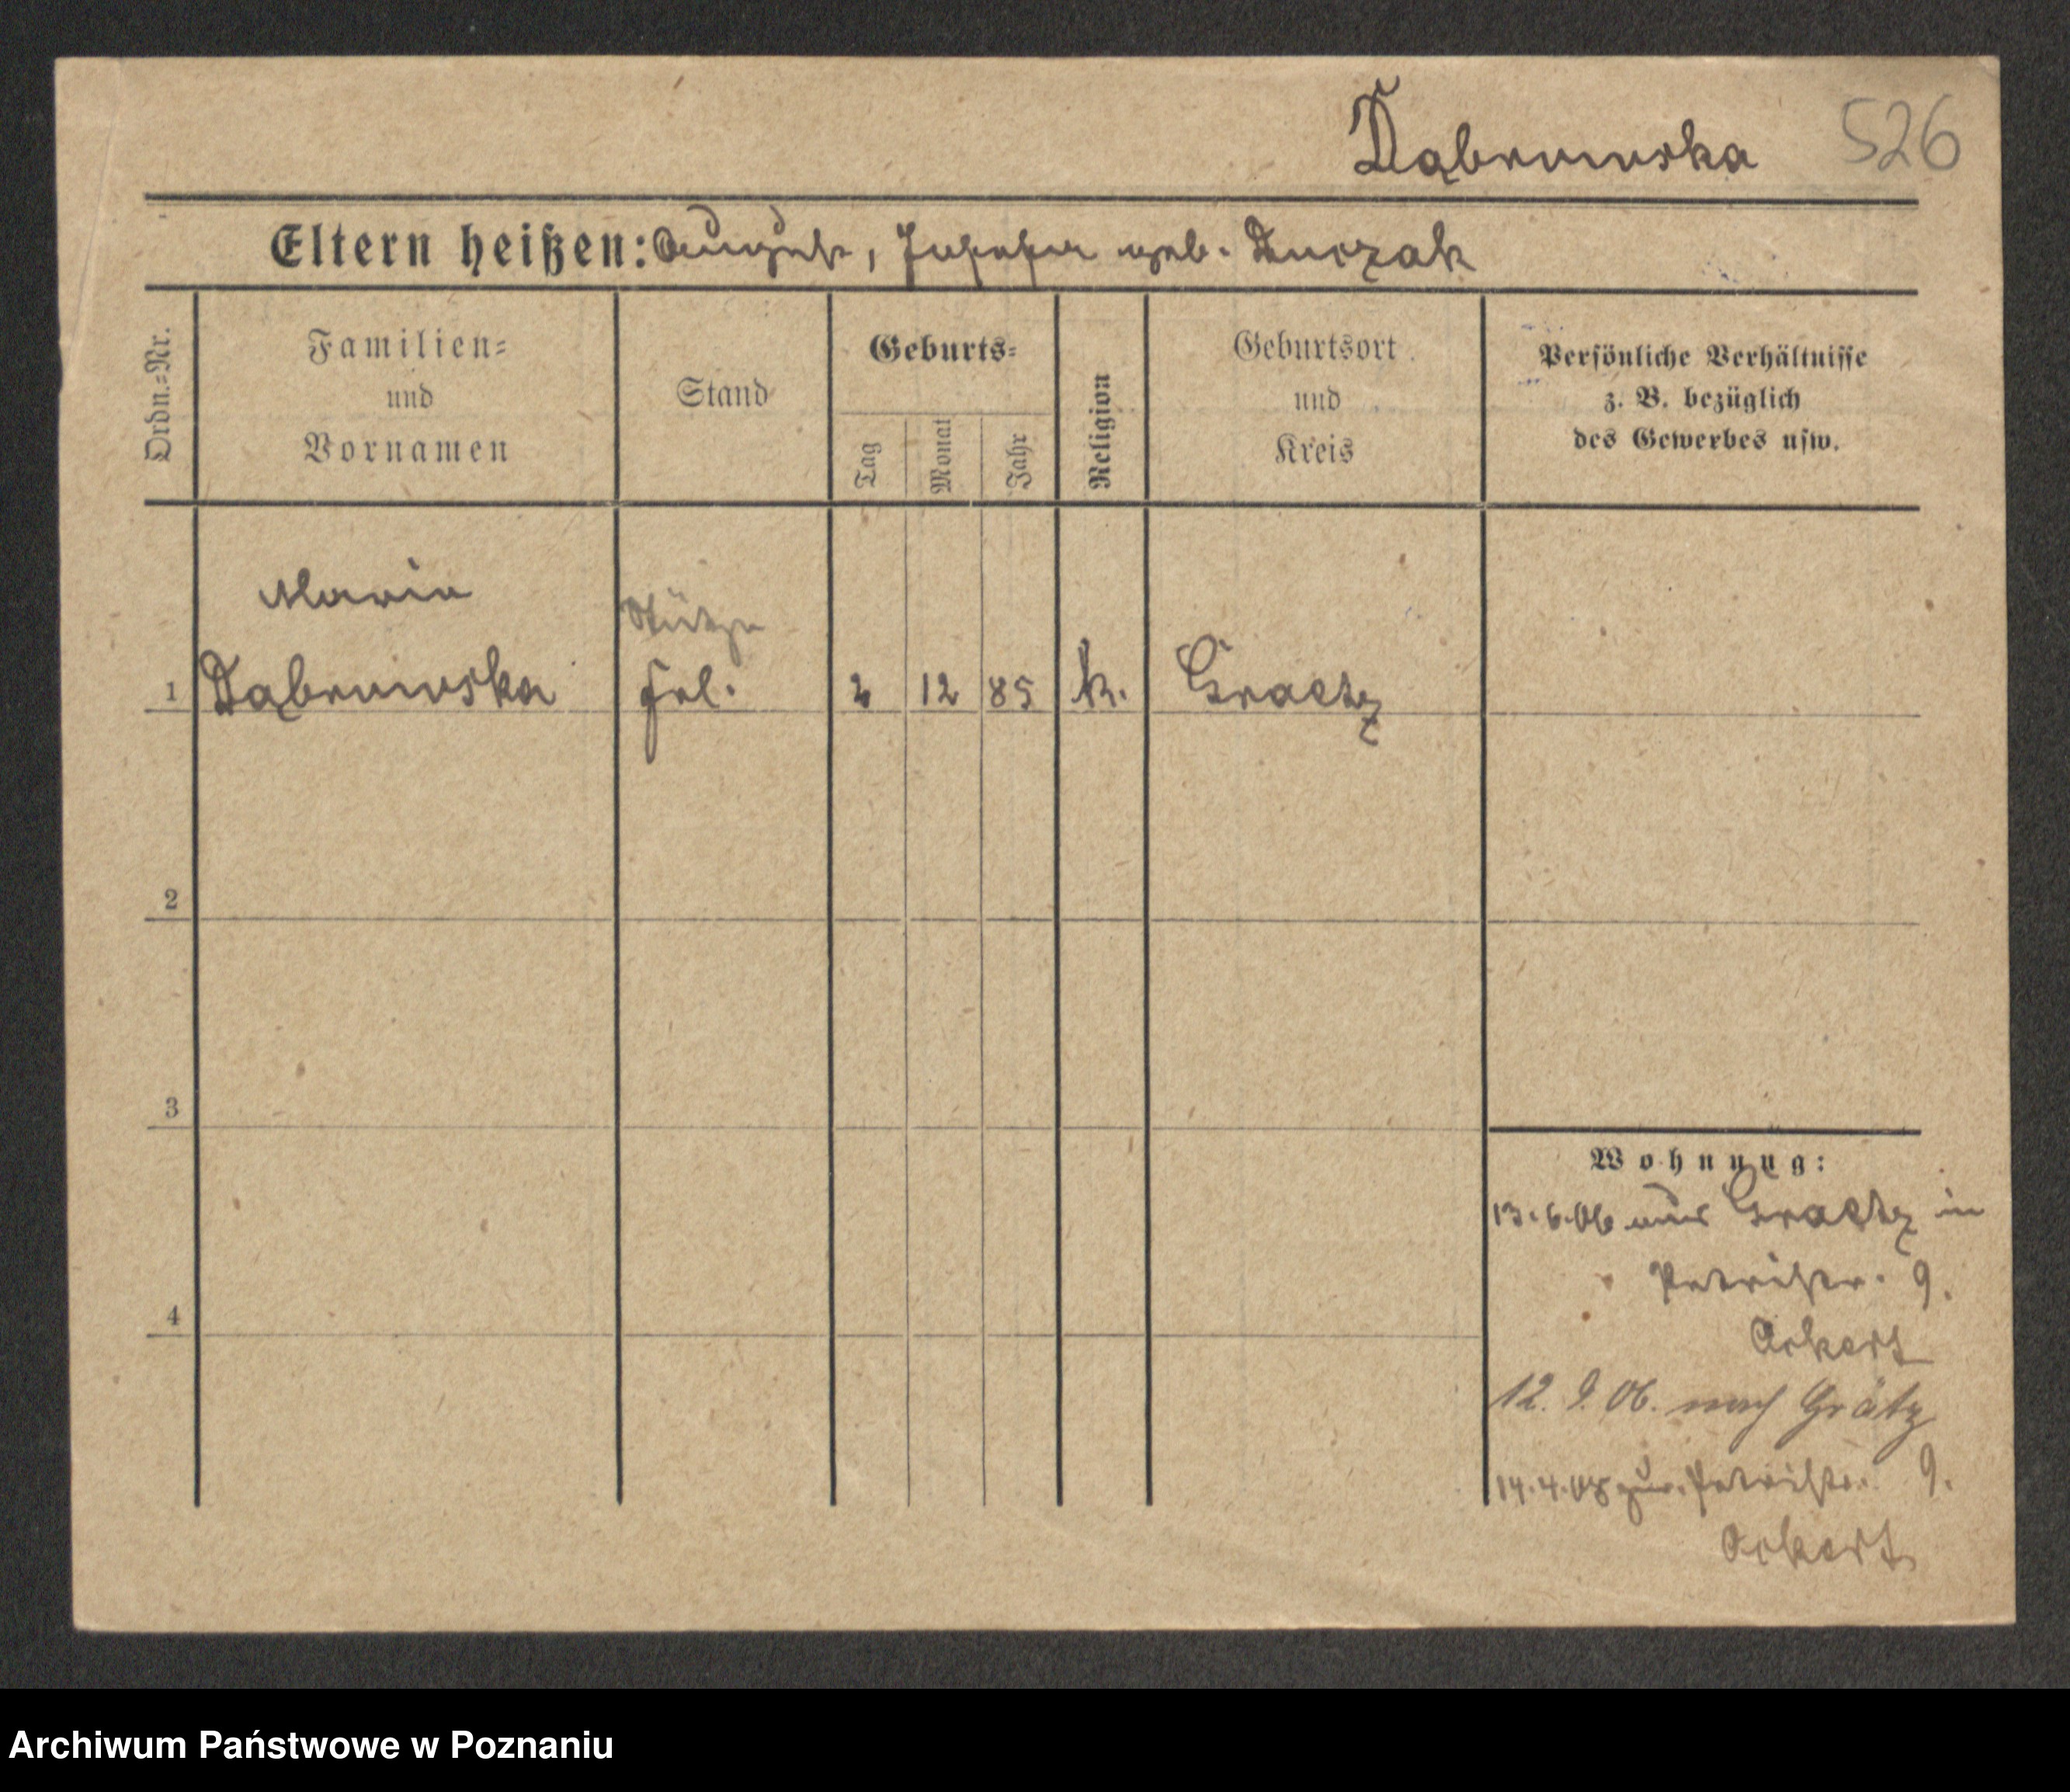 Dąbrowska 526
Eltern heißen: August, Josefa geb. Kuczak
Ordn.=Nr.
Familien=
und
Vornamen
Stand
Geburts=
Tag
Monat
Jahr
Religion
Geburtsort
und
Kreis
Persönliche Verhältnisse
z. B. bezüglich
des Gewerbes usw.
Maria
Stütze
1 Dąbrowska Frl. 2 12 85 k. Graetz
2
3
4
Wohnung:
13.6.06 aus Graetz in
Petristr. 9.
Ackert
12. 9. 06. nach Grätz
14.4.08 zur. Petristr. 9.
Ackert
Archiwum Państwowe w Poznaniu